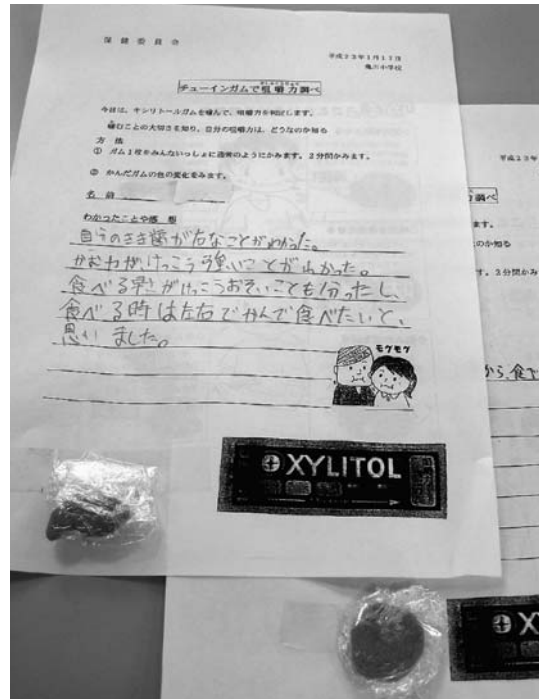 保健委員会
平成23年1月17日
亀川小学校
チューインガムで咀嚼力調べ
今日は、キシリトールガムを噛んで、咀嚼力を判定します。
噛むことの大切さを知り、自分の咀嚼力は、どうなのか知る
方法
① ガム1枚をみんないっしょに通常のようにかみます。2分間かみます。
② かんだガムの色の変化をみます。
名前
わかったことや感想
自分のきき歯が右なことがわかった。
かむ力がけっこう強いことが分かった。
食べる早さがけっこうおそいことも分ったし、
食べる時は左右でかんで食べたいと、
思いました。
モグモグ
XYLITOL
平成23年
調べ
ます。
のか知る
す。2分間かみ
から、食べ